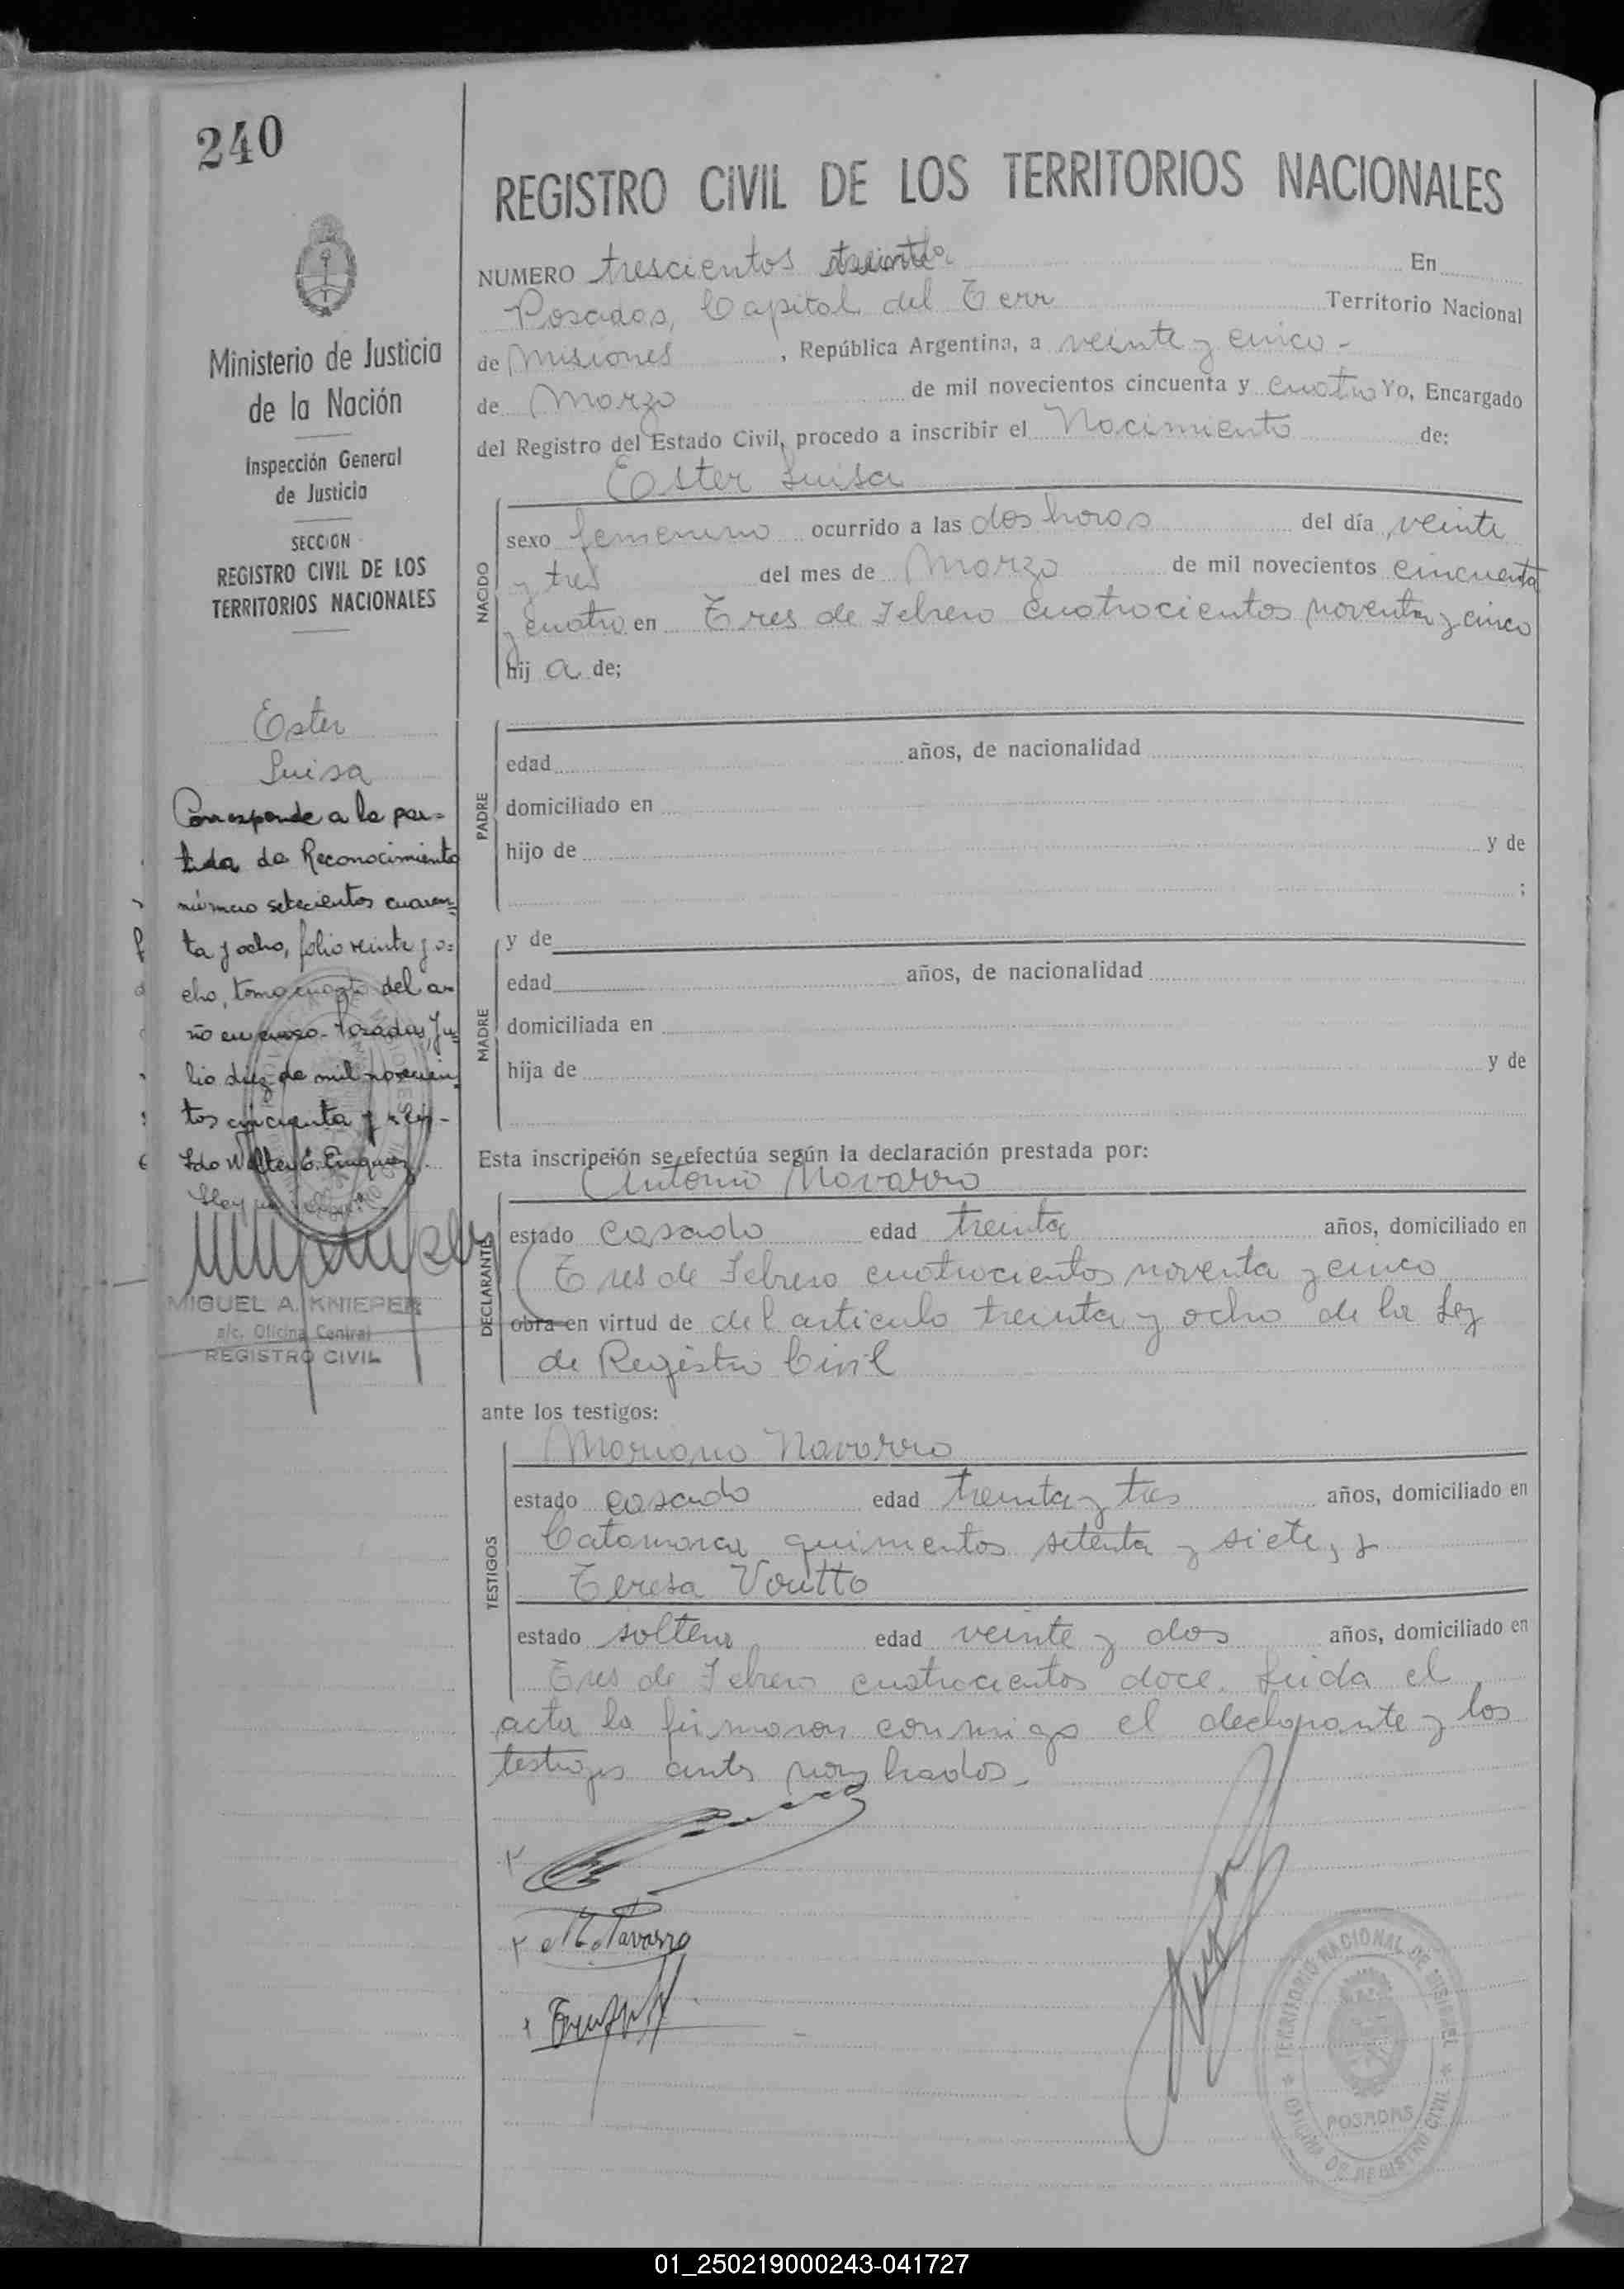 240
Ministerio de Justicia
de la Nación
Inspección General
de Justicia
SECCION
REGISTRO CIVIL DE LOS
TERRITORIOS NACIONALES
Ester
Luisa
Corresponde a la par=
tida de Reconocimiento
número setecientos cuaren=
ta y ocho, folio veinte y o=
cho, tomo cuarto del a=
ño en curso. Posadas, Ju=
lio diez de mil novecien
tos cincuenta y seis-
Fdo Walter
Hay un sello
MIGUEL A. KNIEPER
a/c. Oficina Central
REGISTRO CIVIL
REGISTRO CIVIL DE LOS TERRITORIOS NACIONALES
NUMERO trescientos treinta En
Posadas, Capital del Terr Territorio Nacional
de Misiones , República Argentina, a veinte y cinco -
de Marzo de mil novecientos cincuenta y cuatro Yo, Encargado
del Registro del Estado Civil, procedo a inscribir el Nacimiento de:
Ester Luisa
NACIDO
sexo femenino ocurrido a las dos horas del día veinte
y tres del mes de Marzo de mil novecientos cincuenta
y cuatro en Tres de Febrero cuatrocientos noventa y cinco
hij a de;
PADRE
edad años, de nacionalidad
domiciliado en
hijo de y de
;
MADRE
y de
edad años, de nacionalidad
domiciliada en
hija de y de
Esta inscripción se efectúa según la declaración prestada por:
Antonio Navarro
DECLARANTE
estado casado edad treinta años, domiciliado en
Tres de Febrero cuatrocientos noventa y cinco
obra en virtud de del artículo treinta y ocho de la Ley
de Registro Civil
ante los testigos:
Mariano Navarro
TESTIGOS
estado casado edad treinta y tres años, domiciliado en
Catamarca quinientos setenta y siete, y
Teresa Voutto
estado soltera edad veinte y dos años, domiciliado en
Tres de Febrero cuatrocientos doce. Leida el
acta la firmaron conmigo el declarante y los
testigos antes nombrados.
M. Navarro
TERRITORIO NACIONAL DE MISIONES
POSADAS
OFICINA DE REGISTRO CIVIL
01_250219000243-041727